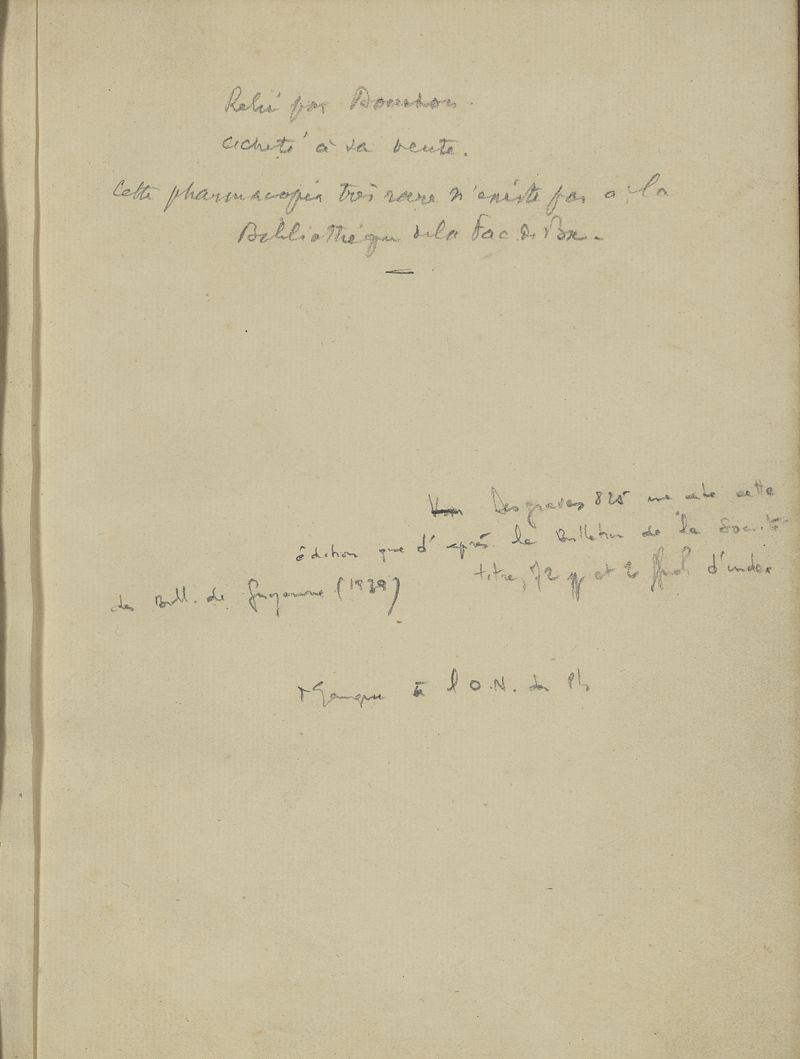 Relié par Bourbon.
acheté à sa vente.
Cette pharmacopée très rare n'existe pas à la
Bibliothèque de la Fac. de Bx.
Desgraves 825 ne cite cette
édition que d'après le Bulletin de la Société
des Bibl. de Guyenne (1939)
titre, 72 pp et 2 ffnch d'index
Manque à l'O.N. des Ph